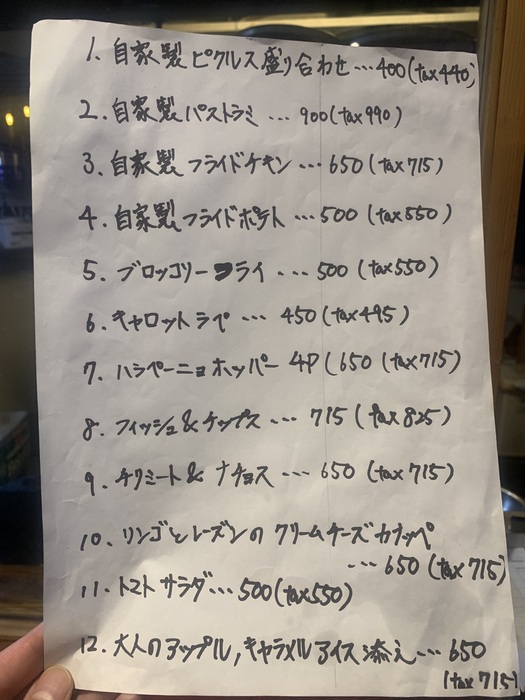 1. 自家製ピクルス盛り合わせ…400(tax440)
2. 自家製パストラミ …900(tax990)
3. 自家製フライドチキン …650(tax715)
4. 自家製フライドポテト …500(tax550)
5. ブロッコリーフライ …500(tax550)
6. キャロットラペ …450(tax495)
7. ハラペーニョホッパー 4P(650(tax715)
8. フィッシュ&チップス …715(tax825)
9. チリミート& ナチョス …650(tax715)
10. リンゴとレーズンの クリームチーズカナッペ
…650(tax715)
11. トマトサラダ…500(tax550)
12. 大人のアップル,キャラメルアイス添え…650
(tax715)